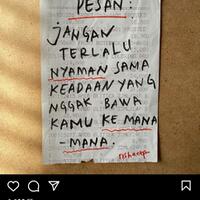 PESAN:
JANGAN
TERLALU
NYAMAN SAMA
KEADAAN YANG
NGGAK BAWA
KAMU KE MANA
-MANA.